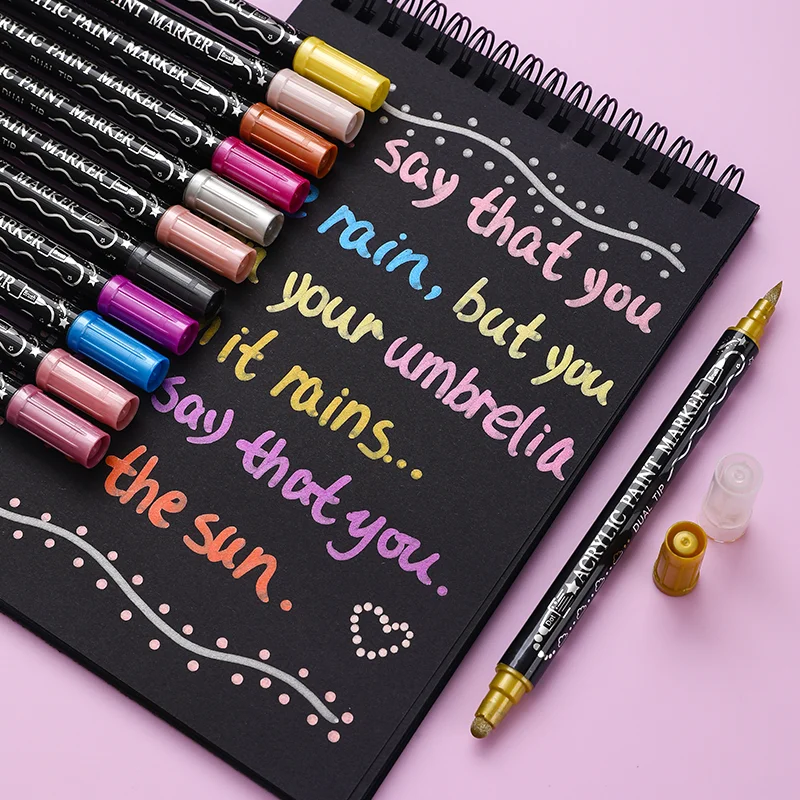 ACRYLIC PAINT MARKER Brush
ACRYLIC PAINT MARKER
DUAL TIP
PAINT MARKER
PAINT MARKER
MARKER
MARKER
say that you
rain, but you
your umbrelia
it rains...
say that you.
the sun.
ACRYLIC PAINT MARKER
DUAL TIP
Dot